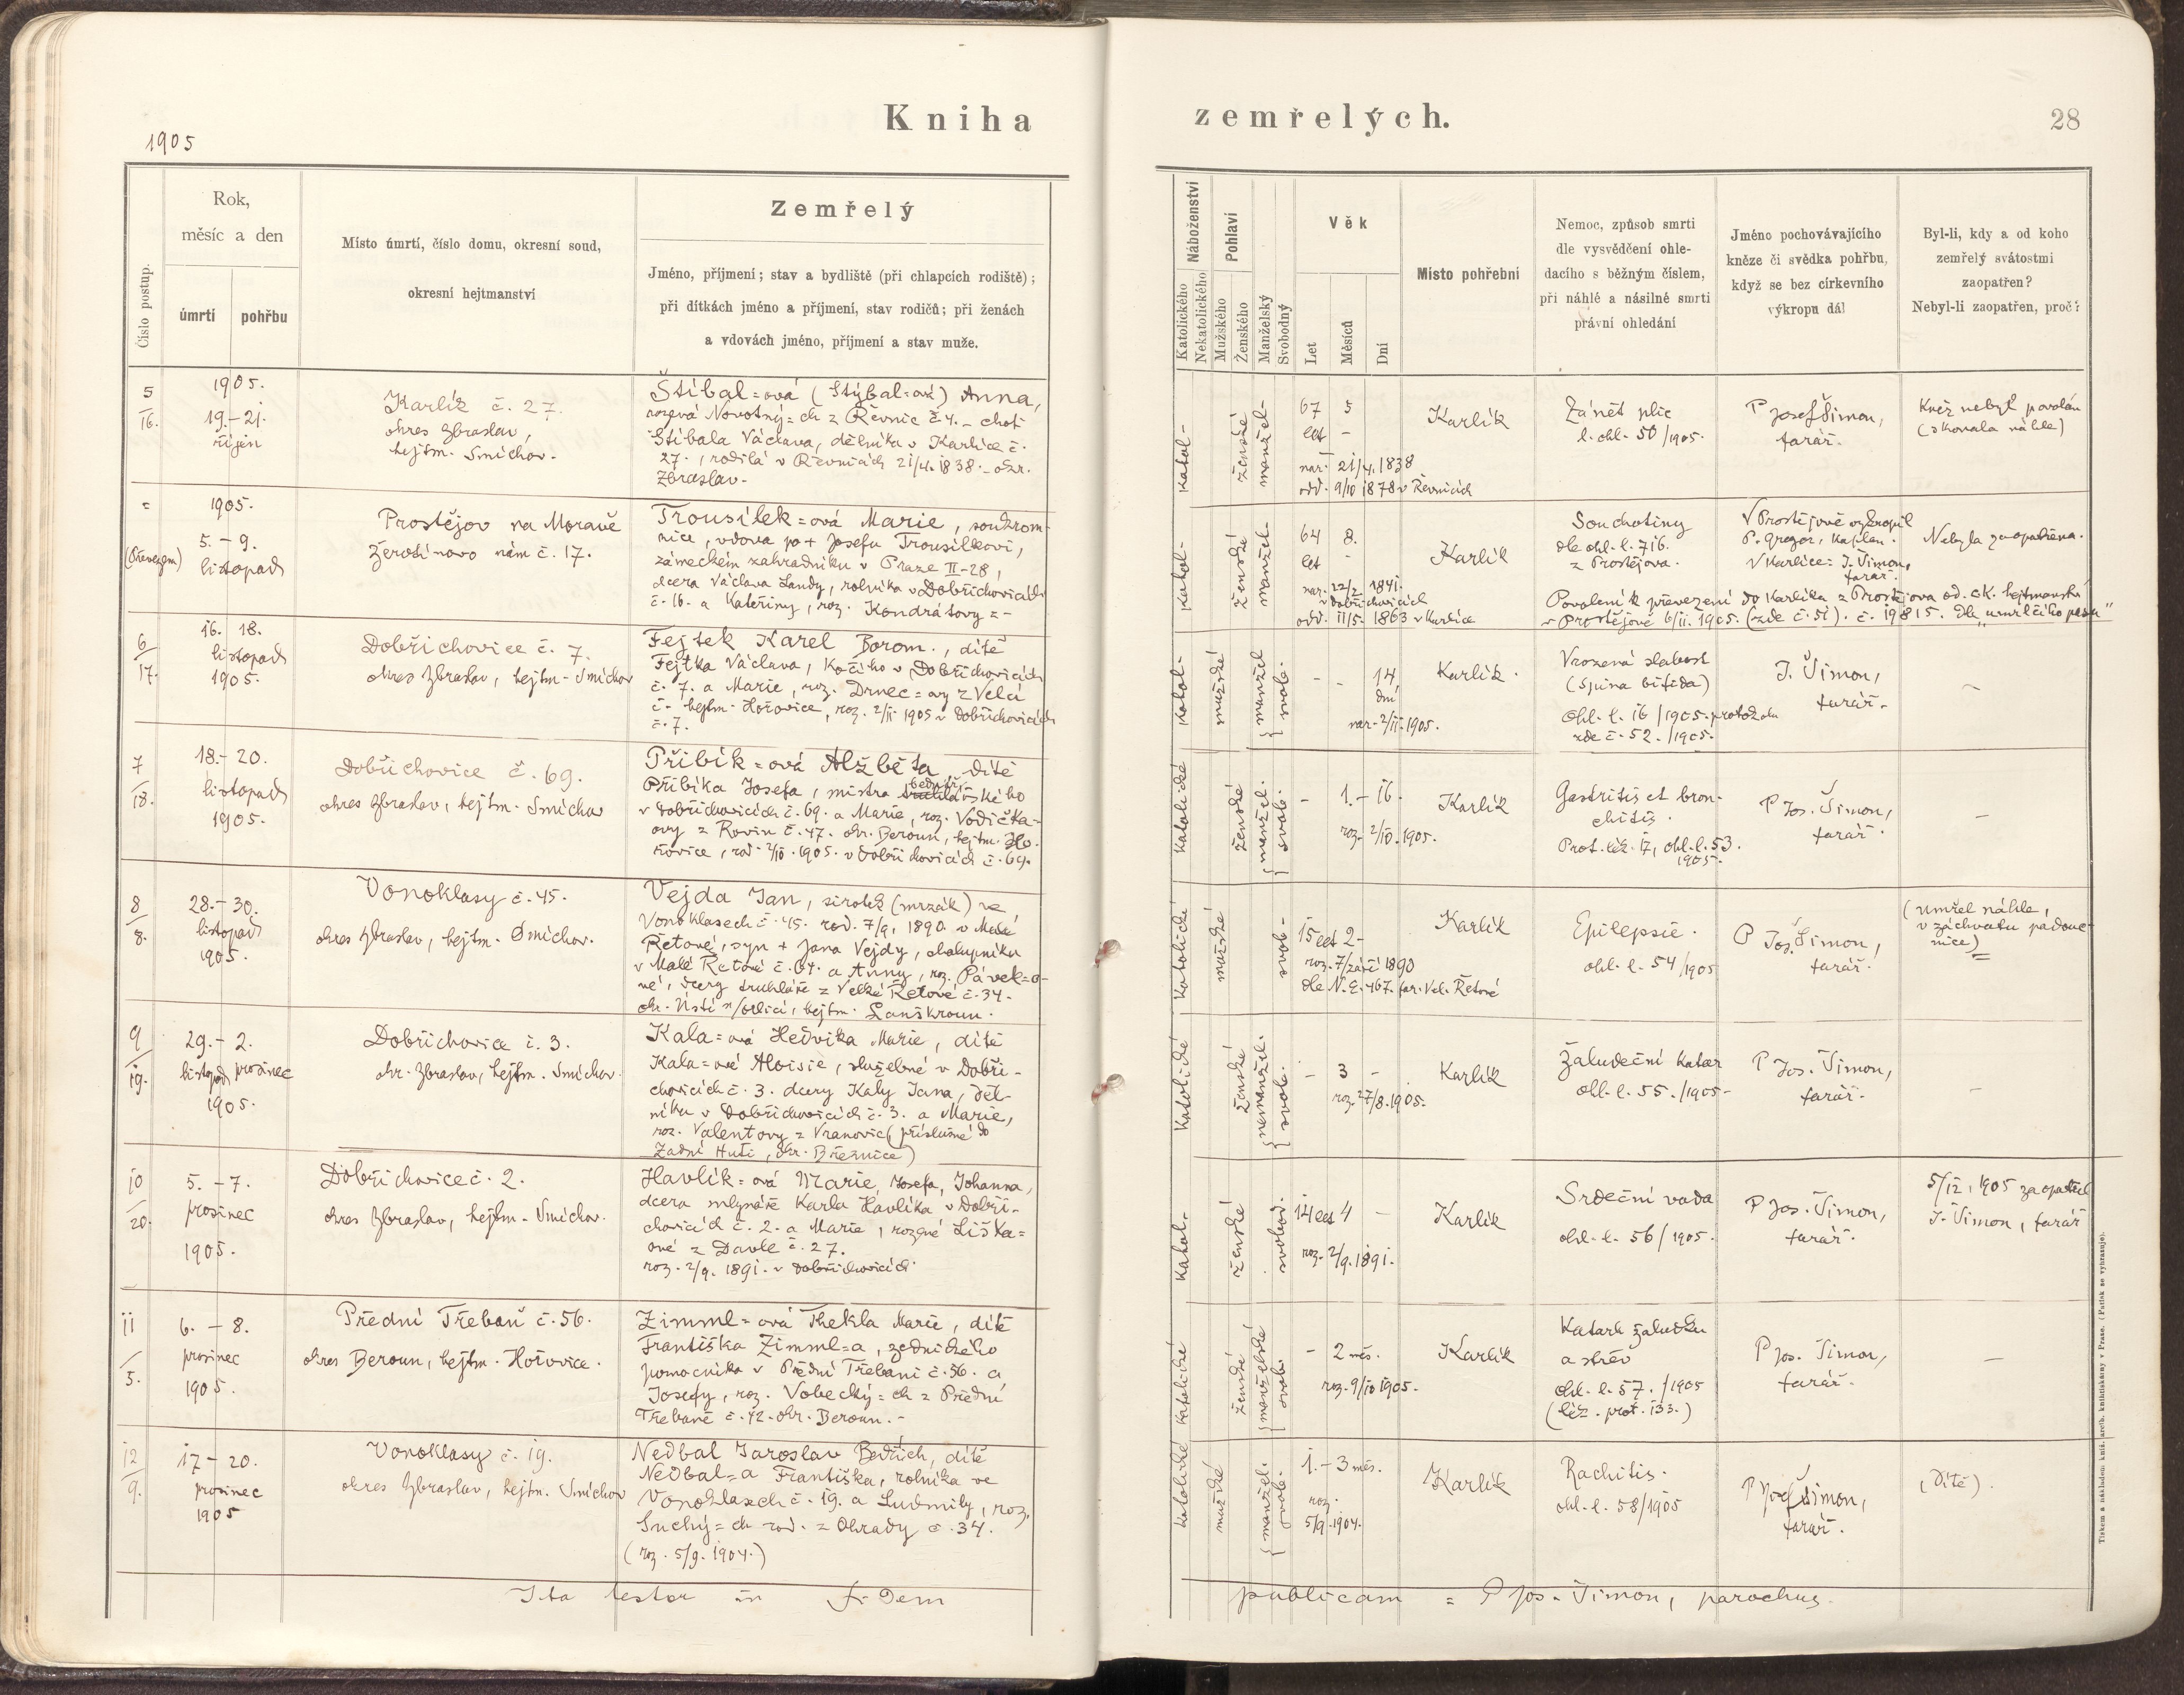 1905
Kniha zemřelých.
28
Číslo postup.
Rok,
měsíc a den
úmrtí
pohřbu
Místo úmrtí, číslo domu, okresní soud,
okresní hejtmanství
Zemřelý
Jméno, příjmení; stav a bydliště (při chlapcích rodiště);
při dítkách jméno a příjmení, stav rodičů; při ženách
a vdovách jméno, příjmení a stav muže.
Náboženství
Katolického
Nekatolického
Pohlaví
Mužského
Ženského
Manželský
Svobodný
Věk
Let
Měsíců
Dní
Místo pohřební
Nemoc, způsob smrti
dle vysvědčení ohle-
dacího s běžným číslem,
při náhlé a násilné smrti
právní ohledání
Jméno pochovávajícího
kněze či svědka pohřbu,
když se bez církevního
výkropu dál
Byl-li, kdy a od koho
zemřelý svátostmi
zaopatřen?
Nebyl-li zaopatřen, proč?
5
16.
1905.
19.-21.
říjen
Karlík č. 27.
okres Zbraslav,
hejtm. Smíchov.
Štíbal=ová (Stýbal=ová) Anna,
rozená Novotný=ch z Řevnic č. 4. - choť
Štíbala Václava, dělníka v Karlíce č.
27., rodilá v Řevnicích 21/4. 1838. - okr.
Zbraslav.
katol-
ženské
manžel-
67 5
let -
nar. 21/4. 1838
odd. 9/10 1878 v Řevnicích
Karlík
Zánět plic
č. ohl. 50/1905.
P Josef Šimon,
farář.
Kněz nebyl povolán
(skonala náhle)
=
(Převezen)
1905.
5. - 9.
listopad
Prostějov na Moravě
Žerotínovo nám č. 17.
Trousílek=ová Marie, soukrom-
nice, vdova po + Josefu Trousílkovi,
zámeckém zahradníku v Praze II-28,
dcera Václava Landy, rolníka v Dobřichovicích
č. 16. a Kateřiny, roz. Kondrátovy = -
katol-
ženské
manžel.
64 8.
let -
nar. 22/2 1841.
v Dobřichovicích
odd. 11/5. 1863 v Karlíce
Karlík
Souchotiny
dle ohl. č. 716.
z Prostějova.
V Prostějově vykropil
P. Gregor, kaplan.
V Karlíce: J. Šimon,
farář.
Nebyla zaopatřena.
Povolení k převezení do Karlíka z Prostějova od c.k. hejtmanství
v Prostějově 6/11. 1905. (zde č. 51). č. 19815. Dle „umrlčího pasu"
6
17.
16. 18.
listopad
1905.
Dobřichovice č. 7.
okres Zbraslav, hejtm. Smíchov
Fejtek Karel Borom., dítě
Fejtka Václava, kočího v Dobřichovicích
č. 7. a Marie, roz. Drnec=ovy z Velcí
č. - hejtm. Hořovice, roz. 2/11 1905 v Dobřichovicích
č. 7.
katol-
mužské
manžel
svob.
- - 14
dní
nar. 2/11. 1905.
Karlík.
Vrozená slabost
(spina bifida)
Ohl. č. 16/1905. protokolu
zde č. 52./1905.
J. Šimon,
farář.
-
7
18.
18.- 20.
listopad
1905.
Dobřichovice č. 69.
okres Zbraslav, hejtm. Smíchov
Přibík=ová Alžběta, dítě
Přibíka Josefa, mistra bednářského
v Dobřichovicích č. 69. a Marie, roz. Vodička-
ovy z Rovin č. 47. okr. Beroun, hejtm. Ho-
řovice, rod. 2/10. 1905. v Dobřichovicích č. 69.
katolické
ženské
manžel.
svob.
- 1.- 16.
roz. 2/10. 1905.
Karlík
Gastritis et bron-
chitis.
Prot. léč. 17, ohl. č. 53.
1905.
P Jos. Šimon,
farář.
-
8
8.
28.- 30.
listopad
1905.
Vonoklasy č. 45.
okres Zbraslav, hejtm. Smíchov.
Vejda Jan, sirotek (mrzák) ve
Vonoklasech č. 45. rod. 7/9. 1890. v Malé
Řetové, syn + Jana Vejdy, chalupníka
v Malé Řetové č. 64. a Anny, roz. Pávek=o-
vé, dcery truhláře z Velké Řetové č. 34.
okr. Ústí n/Orlicí, hejtm. Lanškroun.
katolické
mužské
svob-
15 let 2-
roz. 7/září 1890
dle N.E. 467. far. Vel. Řetové
Karlík
Epilepsie.
ohl. č. 54/1905
P Jos. Šimon,
farář.
(umřel náhle,
v záchvatu padouc-
nice)
9
19.
29.- 2.
listopad prosinec
1905.
Dobřichovice č. 3.
okr. Zbraslav, hejtm. Smíchov.
Kala=ová Hedvika Marie, dítě
Kala=ové Aloisie, služebné v Dobři-
chovicích č. 3. dcery Kaly Jana, děl-
níka v Dobřichovicích č. 3. a Marie,
roz. Valentovy z Vranovic (příslušné do
Zadní Huti, okr. Březnice)
katolické
ženské
nemanžel.
svob.
- 3 -
roz. 27/8. 1905.
Karlík
Žaludeční katar
ohl. č. 55./1905-
P Jos. Šimon,
farář.
-
10
20.
5. - 7.
prosinec
1905.
Dobřichovice č. 2.
okres Zbraslav, hejtm. Smíchov.
Havlík=ová Marie, Josefa, Johanna,
dcera mlynáře Karla Havlíka v Dobři-
chovicích č. 2. a Marie, rozené Liška=
ové z Davle č. 27.
roz. 2/9. 1891. v Dobřichovicích.
katol-
ženské
svobod.
14 let 4 -
roz. 2/9. 1891.
Karlík
Srdeční vada
ohl. č. 56/1905.
P Jos. Šimon,
farář.
5/12. 1905 zaopatřil
J. Šimon, farář
11
5.
6. - 8.
prosinec
1905.
Přední Třebaň č. 56.
okres Beroun, hejtm. Hořovice.
Zimml=ová Thekla Marie, dítě
Františka Zimml=a, zednického
pomocníka v Přední Třebani č. 56. a
Josefy, roz. Vobecký=ch z Přední
Třebaně č. 42. okr. Beroun. -
katolické
ženské
manželské
svob.
- 2 més.
roz. 9/10 1905.
Karlík
Katarh žaludku
a střev
ohl. č. 57./1905
(léč. prot. 133.)
P Jos. Šimon,
farář.
-
12
9.
17- 20.
prosinec
1905
Vonoklasy č. 19.
okres Zbraslav, hejtm. Smíchov
Nedbal Jaroslav Bedřich, dítě
Nedbal=a Františka, rolníka ve
Vonoklasech č. 19. a Ludmily, roz.
Suchý=ch rod. z Ohrady č. 34.
(roz. 5/9. 1904.)
katolické
mužské
manžel.
svob.
1.- 3 més.
roz.
5/9. 1904.
Karlík
Rachitis.
ohl. č. 58/1905
P Josef Šimon,
farář.
(dítě).
Ita testor in fidem publicam = P Jos. Šimon, parochus.
Tiskem a nákladem kníž. arcib. knihtiskárny v Praze. (Patisk se vyhrazuje).